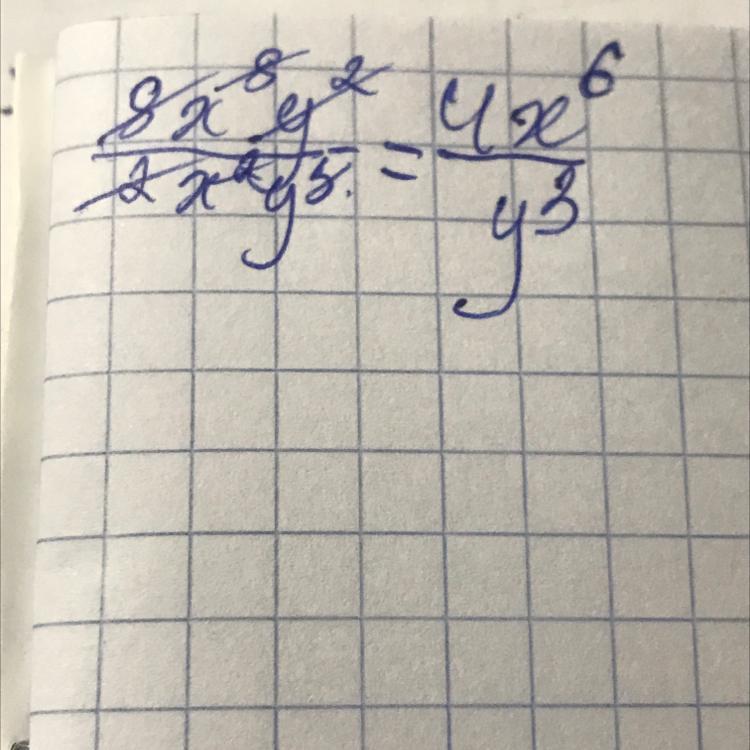 8x⁸y² / 2x²y⁵ = 4x⁶ / y³